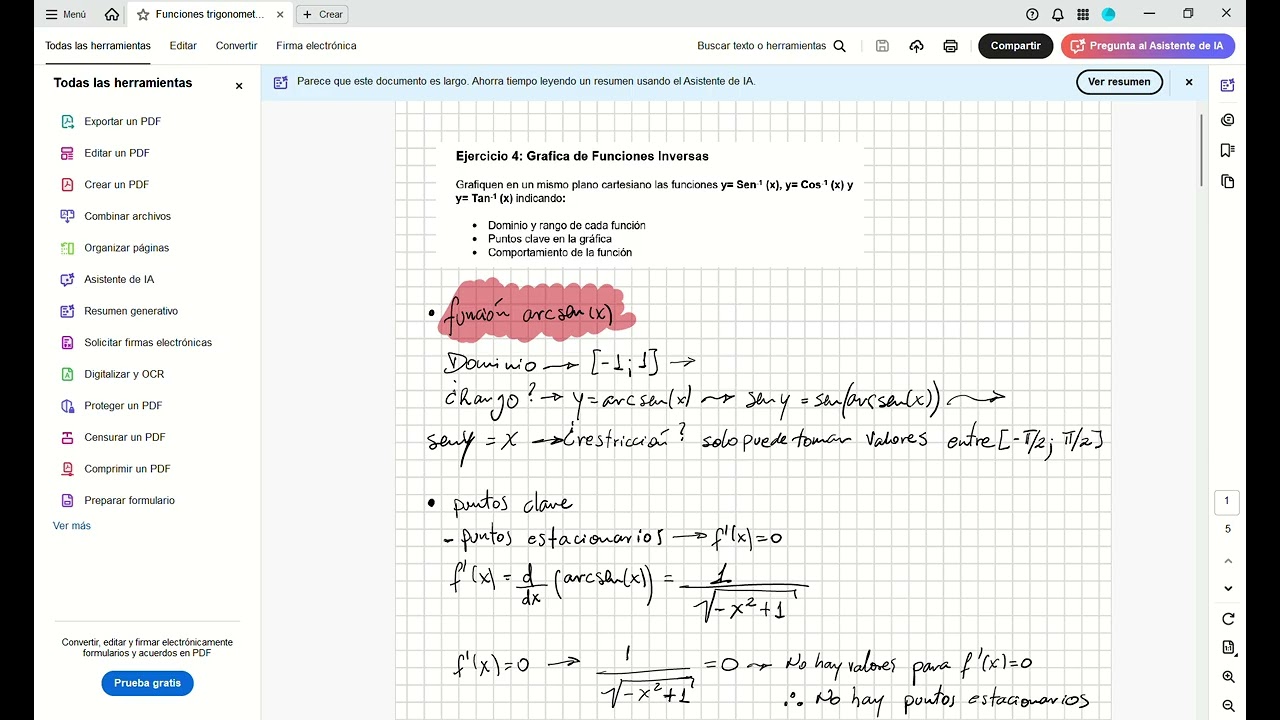 Menú
Funciones trigonomet...
Crear
Todas las herramientas
Editar
Convertir
Firma electrónica
Buscar texto o herramientas
Compartir
Pregunta al Asistente de IA
Todas las herramientas
Exportar un PDF
Editar un PDF
Crear un PDF
Combinar archivos
Organizar páginas
Asistente de IA
Resumen generativo
Solicitar firmas electrónicas
Digitalizar y OCR
Proteger un PDF
Censurar un PDF
Comprimir un PDF
Preparar formulario
Ver más
Convertir, editar y firmar electrónicamente
formularios y acuerdos en PDF
Prueba gratis
Parece que este documento es largo. Ahorra tiempo leyendo un resumen usando el Asistente de IA.
Ver resumen
Ejercicio 4: Grafica de Funciones Inversas
Grafiquen en un mismo plano cartesiano las funciones y= Sen⁻¹ (x), y= Cos⁻¹ (x) y
y= Tan⁻¹ (x) indicando:
• Dominio y rango de cada función
• Puntos clave en la gráfica
• Comportamiento de la función
• función arcsen(x)
Dominio → [-1; 1] →
¿Rango? → y = arcsen(x) → sen y = sen(arcsen(x)) →
sen y = x → ¿restricción? solo puede tomar valores entre [-π/2; π/2]
• puntos clave
- puntos estacionarios → f'(x)=0
f'(x) = d/dx (arcsen(x)) = 1/√(-x²+1)
f'(x)=0 → 1/√(-x²+1) = 0 → No hay valores para f'(x)=0
∴ No hay puntos estacionarios
1
5